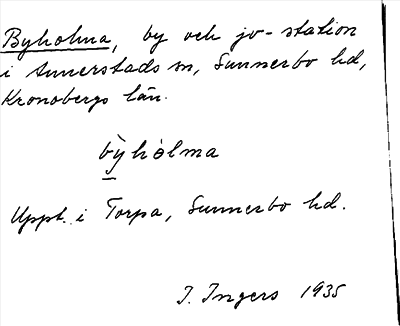 Byholma, by och jv-station
i Annerstads sn, Sunnerbo hd,
Kronobergs län.
bỳhòlma
Uppt. i Torpa, Sunnerbo hd.
I. Ingers 1935